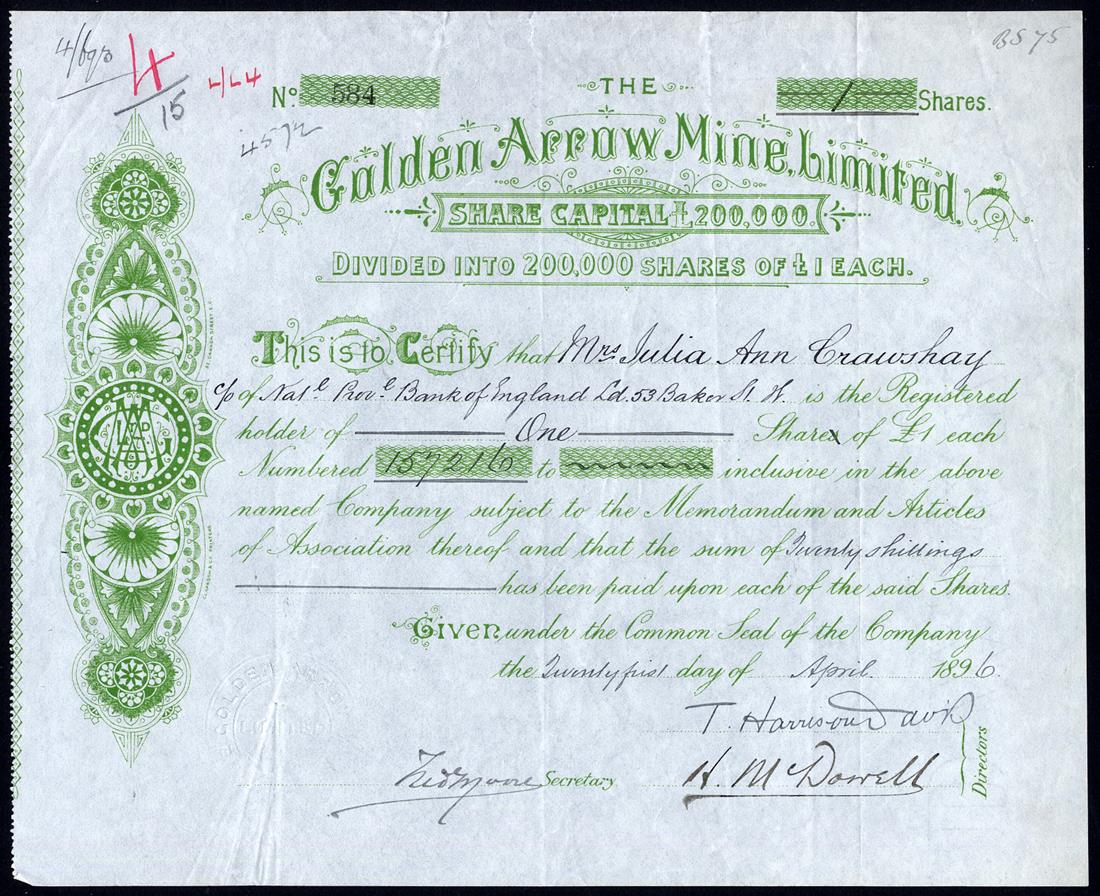 BS 75
4/693 4 4/64
15
4572
Nº 584 THE 1 Shares.
Golden Arrow Mine, Limited.
SHARE CAPITAL £200,000.
DIVIDED INTO 200,000 SHARES OF £1 EACH.
This is to Certify that Mrs. Julia Ann Crawshay
c/o of Natl. Provl. Bank of England Ld. 53 Baker St. W. is the Registered
holder of One Shares of £1 each
Numbered 157216 to inclusive in the above
named Company subject to the Memorandum and Articles
of Association thereof and that the sum of Twenty shillings
has been paid upon each of the said Shares.
Given under the Common Seal of the Company
the Twenty first day of April. 1896.
T. Harrison Davis
H. McDowell
Secretary.
Directors